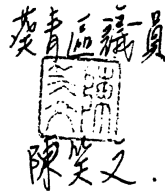 葵青區議員
陳笑文